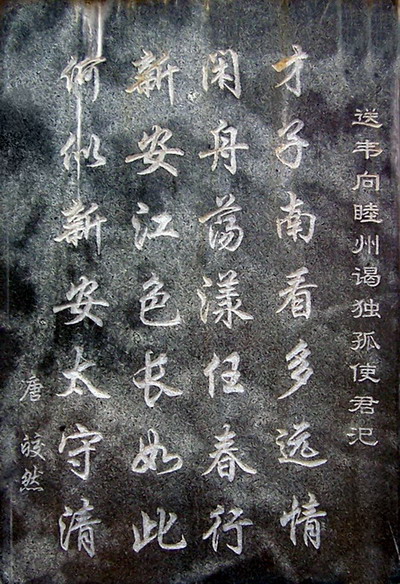 送韦向睦州谒独孤使君汜
才子南看多远情
闲舟荡漾任春行
新安江色长如此
何似新安太守清
唐 皎然